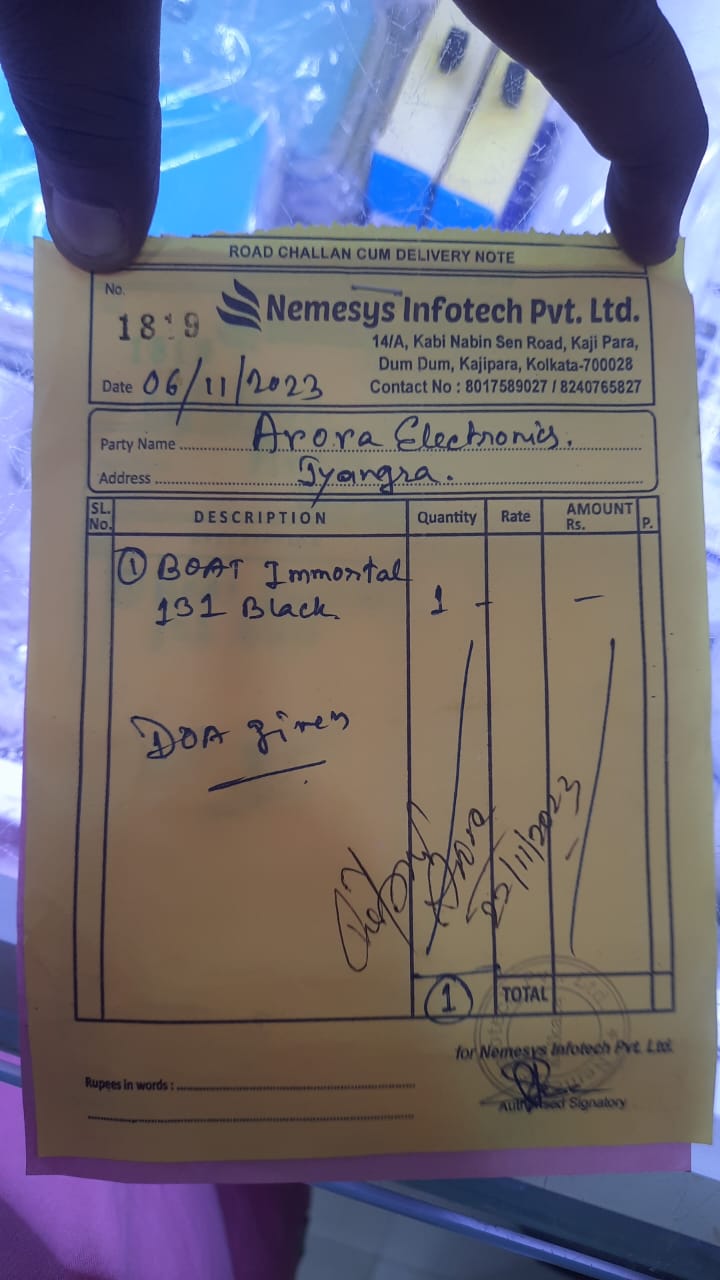 ROAD CHALLAN CUM DELIVERY NOTE
No.
1819
Nemesys Infotech Pvt. Ltd.
14/A, Kabi Nabin Sen Road, Kaji Para,
Dum Dum, Kajipara, Kolkata-700028
Date 06/11/2023
Contact No : 8017589027 / 8240765827
Party Name Arora Electronics.
Address Tyangra.
SL. No. DESCRIPTION Quantity Rate AMOUNT Rs. P.
① BOAT Immortal
131 Black. 1 - -
DOA given
Arora
/11/2023
1 TOTAL
for Nemesys Infotech Pvt. Ltd.
Rupees in words :
Authorised Signatory